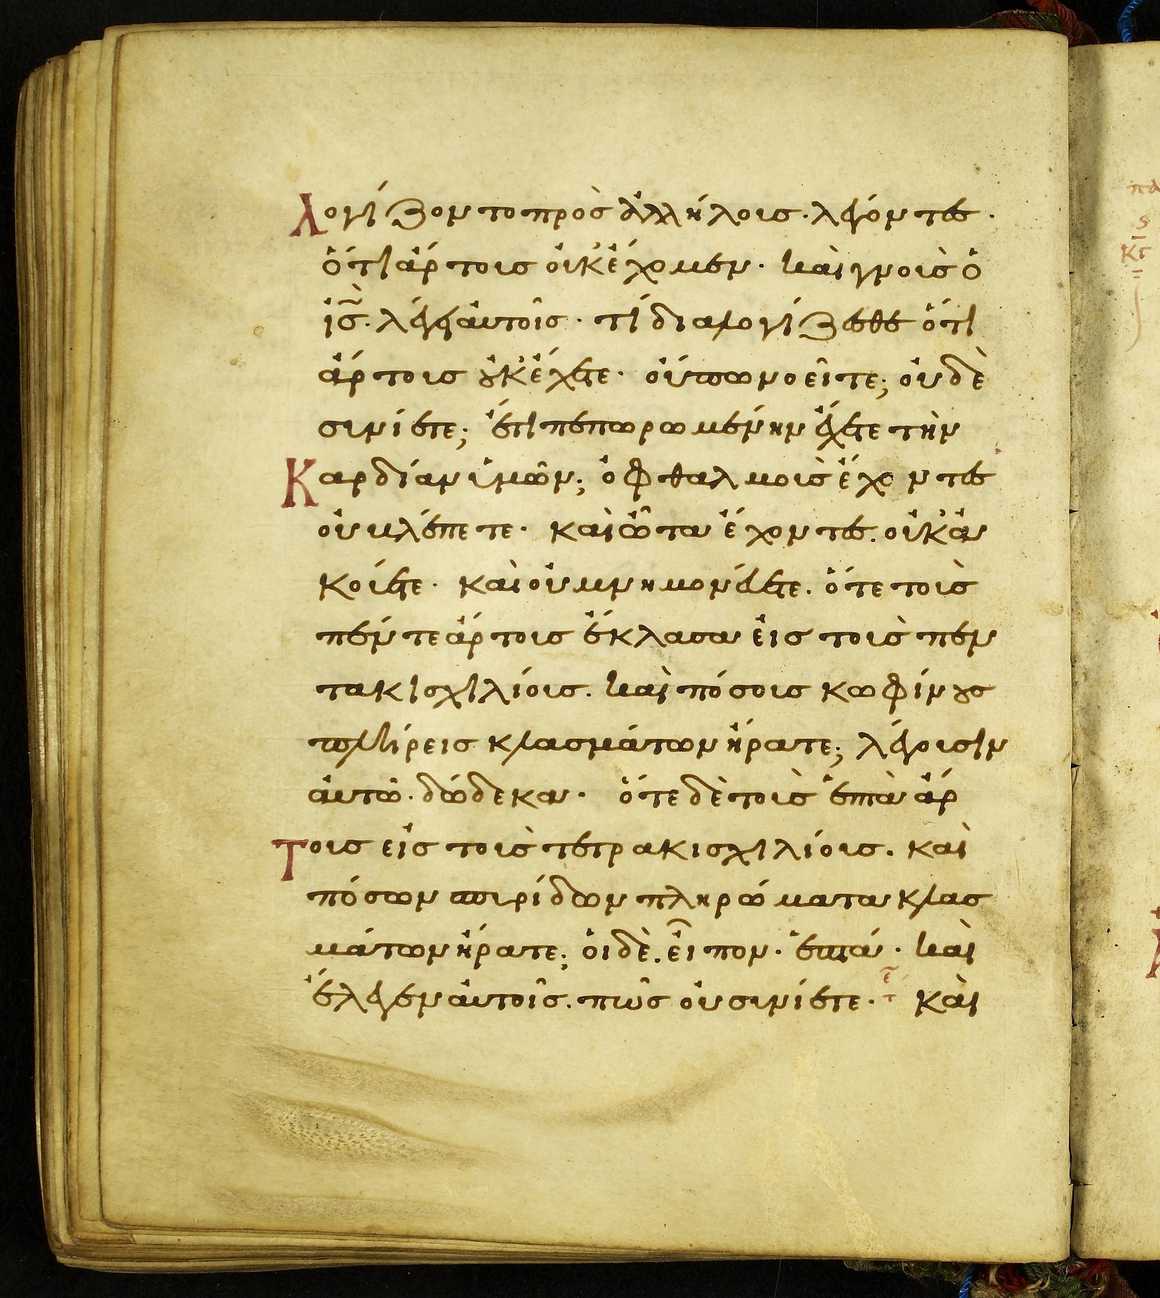 λογίζοντο πρὸς ἀλλήλοις· λέγοντες·
ὅτι ἄρτους οὐκ ἔχομεν· καὶ γνοὺς ὁ
ἰς̅. λέγει αὐτοῖς· τί διαλογίζεσθε ὅτι
ἄρτους οὐκ ἔχετε· οὔπω νοεῖτε; οὐδὲ
συνίετε; ἔτι πεπωρωμένην ἔχετε τὴν
Καρδίαν ὑμῶν; ὀφθαλμοὺς ἔχοντες
οὐ βλέπετε· καὶ ὦτα ἔχοντες. οὐκ ἀ
κούετε· καὶ οὐ μνημονεύετε. ὅτε τοὺς
πέντε ἄρτους ἔκλασα εἰς τοὺς πεν
τακισχιλίους. καὶ πόσους κωφίνους
πλήρεις κλασμάτων ἤρατε; λέγουσιν
αὐτῶ· δώδεκα· ὅτε δὲ τοὺς ἑπτὰ ἄρ
Τους εἰς τοὺς τετρακισχιλίους. καὶ
πόσων σπυρίδων πληρώματα κλασ
μάτων ἤρατε; οἱ δὲ. εἶπον· ἑπτά· καὶ
ἔλεγεν αὐτοῖς. πῶς οὐ συνίετε· τε καὶ